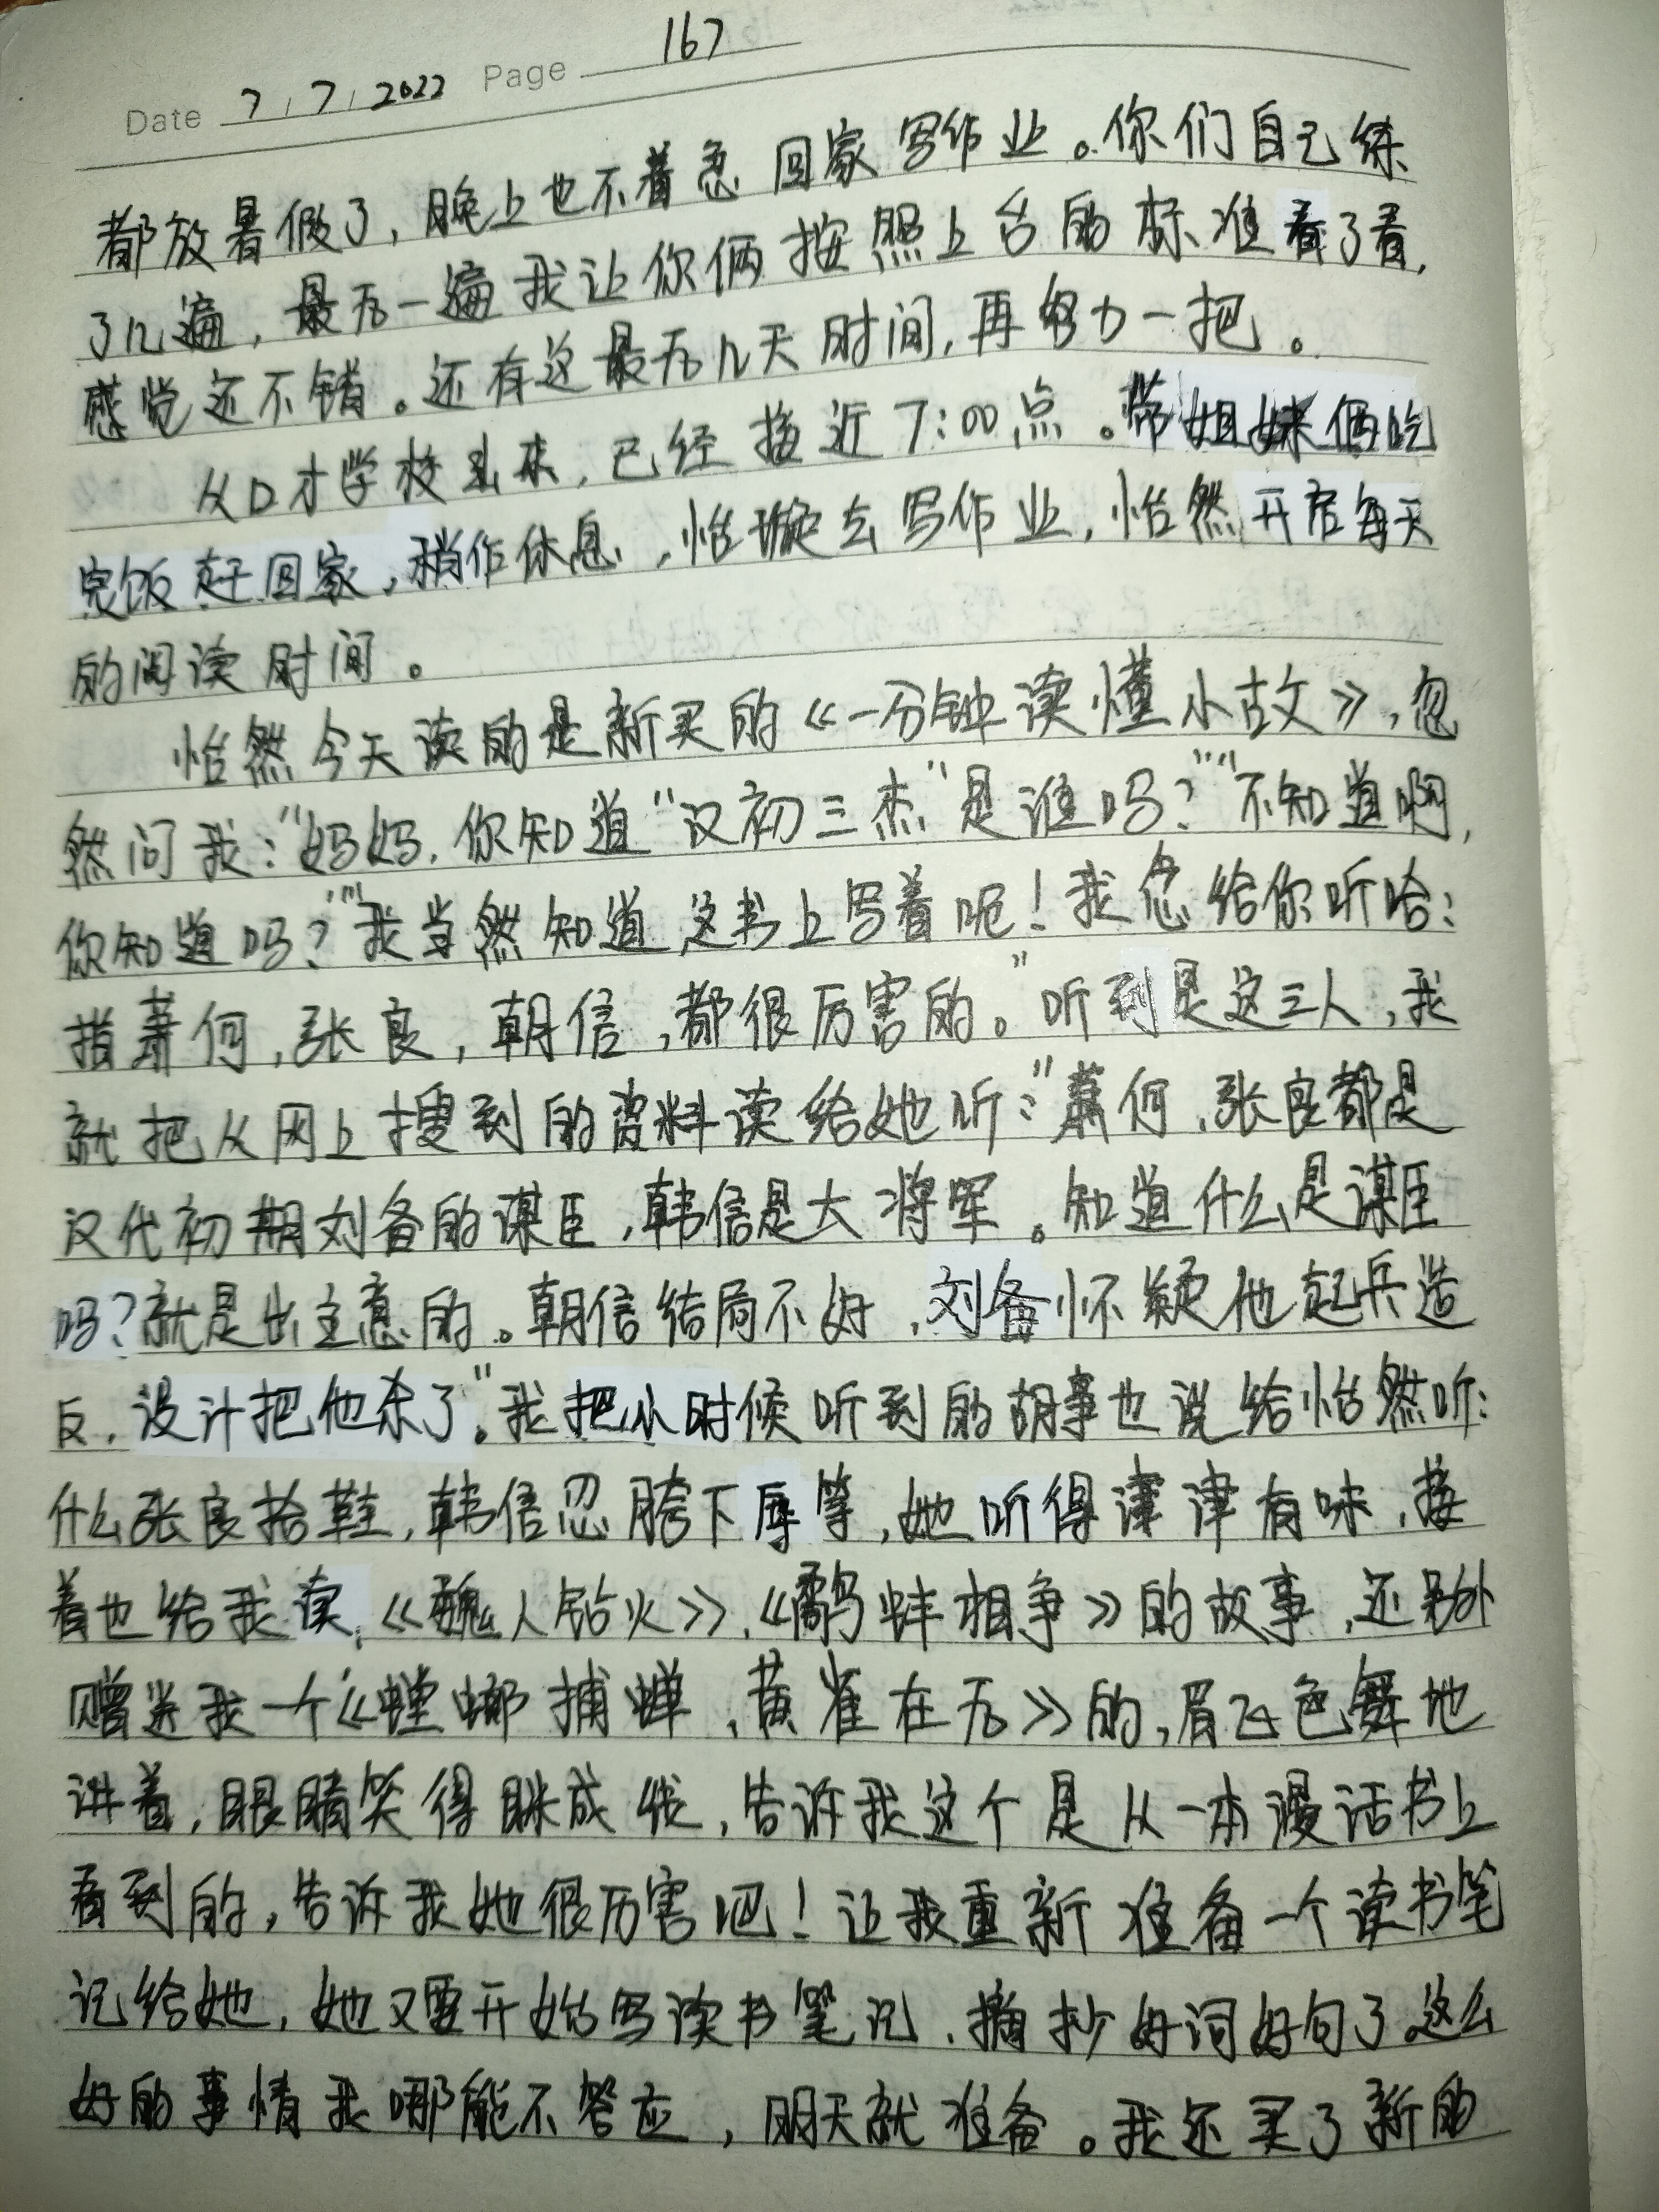 Date 7/7/2022 Page 167
都放暑假了,晚上也不着急回家写作业。你们自己练
了几遍,最后一遍我让你俩按照上台的标准看了看,
感觉还不错。还有这最后几天时间,再努力一把。
从口才学校出来,已经接近7:00点。带姐妹俩吃
完饭赶回家,稍作休息,怡璇去写作业,怡然开启每天
的阅读时间。
怡然今天读的是新买的《一分钟读懂小古文》,忽
然问我:“妈妈,你知道“汉初三杰”是谁吗?”“不知道啊,
你知道吗?”“我当然知道,这书上写着呢!我念给你听哈:
指萧何,张良,朝信,都很厉害的。”听到是这三人,我
就把从网上搜到的资料读给她听:“萧何,张良都是
汉代初期刘备的谋臣,韩信是大将军。知道什么是谋臣
吗?就是出主意的。朝信结局不好,刘备怀疑他起兵造
反,设计把他杀了”。我把小时候听到的胡事也说给怡然听:
什么张良拾鞋,韩信忍胯下辱等,她听得津津有味,接
着也给我读《魏人钻火》,《鹬蚌相争》的故事,还另外
赠送我一个《螳螂捕蝉,黄雀在后》的,眉飞色舞地
讲着,眼睛笑得眯成线,告诉我这个是从一本漫话书上
看到的,告诉我她很厉害吧!让我重新准备一个读书笔
记给她,她又要开始写读书笔记,摘抄好词好句了。这么
好的事情我哪能不答应,明天就准备。我还买了新的